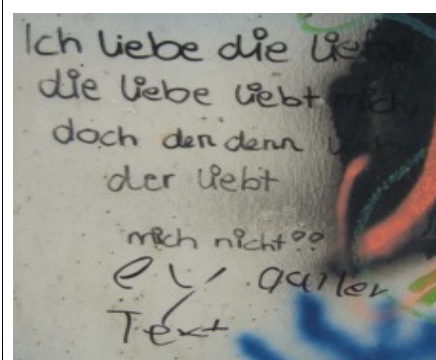 Ich liebe die Liebe
die liebe liebt mich,
doch den denn
der liebt
mich nicht??
ey gailer
Text